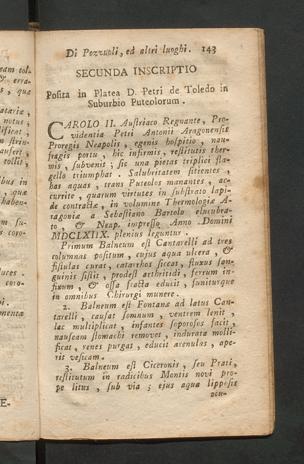 Di Pozzuoli, ed altri luoghi. 143
SECUNDA INSCRIPTIO
Posita in Platea D. Petri de Toledo in
Suburbio Puteolorum.
CAROLO II. Austriaco Regnante, Pro-
videntia Petri Antonii Aragonensis
Proregis Neapolis, egenis hospitio, nau-
fragis portu, hic infirmis, restitutis ther-
mis, subvenit; sic una pietas triplici fla-
gello triumphat. Salubritatem sitientes,
has aquas, trans Puteolos manantes, ac-
currite, quarum virtutes in substrato lapi-
de contractæ, in volumine Thermologia A-
ragonia a Sebastiano Bartolo elucubra-
to, & Neap. impresso Anno Domini
MDCLXIIX. plenius leguntur.
Primum Balneum est Cantarelli ad tres
columnas positum, cujus aqua ulcera, &
fistulas curat, catarrhos siccat, fluxus san-
guinis sistit, prodest arthritidi, ferrum in-
fixum, & ossa fracta educit, funiturque
in omnibus Chirurgi munere.
2. Balneum est Fontana ad latus Can-
tarelli, causat somnum, ventrem lenit,
lac multiplicat, infantes soporosos facit,
nauseam stomachi removet, indurata molli-
ficat, renes purgat, educit arenulas, ape-
rit vesicam.
3. Balneum est Ciceronis, seu Prati,
restitutum in radicibus Montis novi pro-
pe litus, sub via; ejus aqua lipposis
ocu-